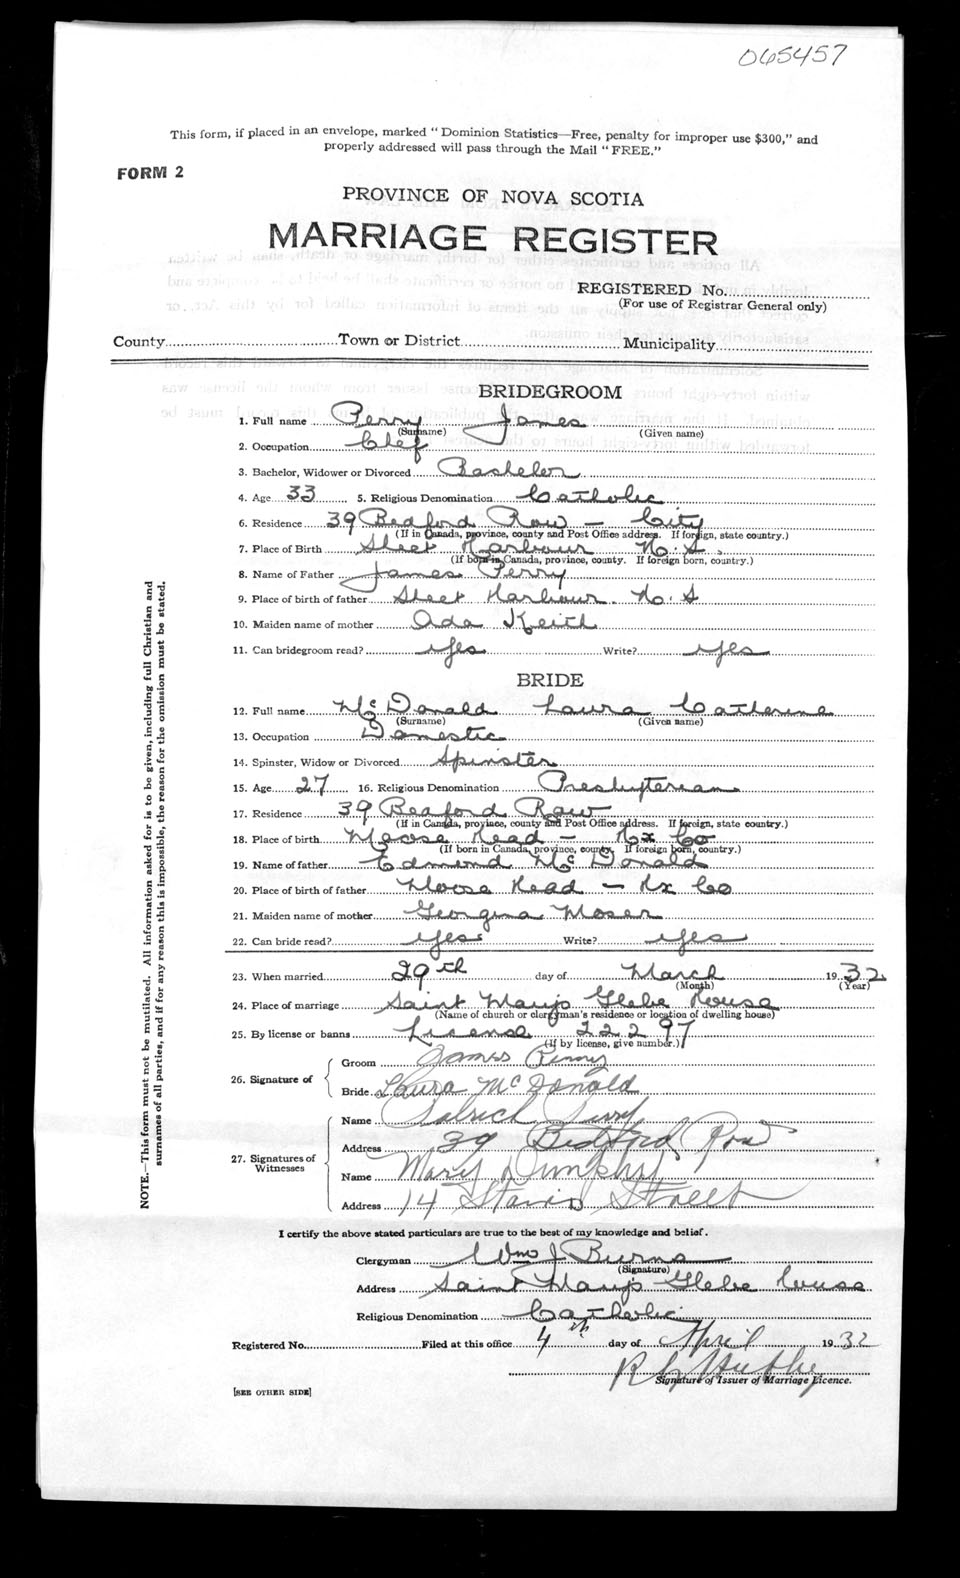 065457
This form, if placed in an envelope, marked "Dominion Statistics—Free, penalty for improper use $300," and
properly addressed will pass through the Mail "FREE."
FORM 2
PROVINCE OF NOVA SCOTIA
MARRIAGE REGISTER
REGISTERED No.
(For use of Registrar General only)
County Town or District Municipality
BRIDEGROOM
1. Full name Perry James
(Surname) (Given name)
2. Occupation Chef
3. Bachelor, Widower or Divorced Bachelor
4. Age 33 5. Religious Denomination Catholic
6. Residence 39 Bedford Row — City
(If in Canada, province, county and Post Office address. If foreign, state country.)
7. Place of Birth Sheet Harbour N.S.
(If born in Canada, province, county. If foreign born, country.)
8. Name of Father James Perry
9. Place of birth of father Sheet Harbour. N.S
10. Maiden name of mother Ada Keith
11. Can bridegroom read? Yes Write? Yes
BRIDE
12. Full name McDonald Laura Catherine
(Surname) (Given name)
13. Occupation Domestic
14. Spinster, Widow or Divorced Spinster
15. Age 27 16. Religious Denomination Presbyterian
17. Residence 39 Bedford Row
(If in Canada, province, county and Post Office address. If foreign, state country.)
18. Place of birth Moose Head — Hx Co
(If born in Canada, province, county. If foreign born, country.)
19. Name of father Edmund McDonald
20. Place of birth of father Moose Head — Hx Co
21. Maiden name of mother Georgina Moser
22. Can bride read? Yes Write? Yes
23. When married 29th day of March 1932
(Month) (Year)
24. Place of marriage Saint Mary's Glebe House
(Name of church or clergyman's residence or location of dwelling house)
25. By license or banns License 22297
(If by license, give number.)
26. Signature of Groom James Perry
Bride Laura McDonald
27. Signatures of Witnesses
Name Perry
Address 39 Bedford Row
Name Mary Dumphy
Address 14 Street
NOTE.—This form must not be mutilated. All information asked for is to be given, including full Christian and
surnames of all parties, and if for any reason this is impossible, the reason for the omission must be stated.
I certify the above stated particulars are true to the best of my knowledge and belief.
Clergyman Wm J Burns
(Signature)
Address Saint Mary's Glebe House
Religious Denomination Catholic
Registered No. Filed at this office 4th day of April 1932
Signature of Issuer of Marriage Licence.
[SEE OTHER SIDE]